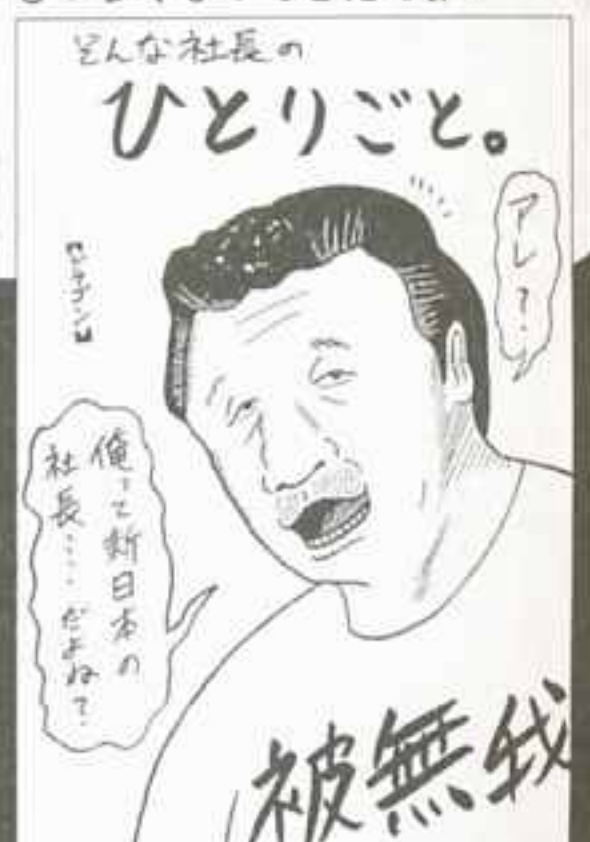 そんな社長の
ひとりごと。
アレ?
俺って新日本の
社長‥‥だよね?
被無我